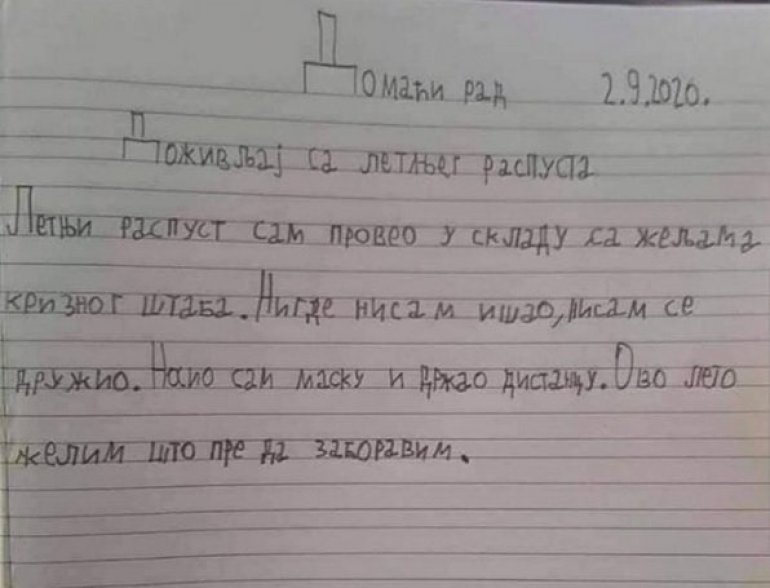 Домаћи рад 2.9.2020.
Доживљај са летњег распуста
Летњи распуст сам провео у складу са жељама
кризног штаба. Нигде нисам ишао, нисам се
дружио. Носио сам маску и држао дистанцу. Ово лето
желим што пре да заборавим.